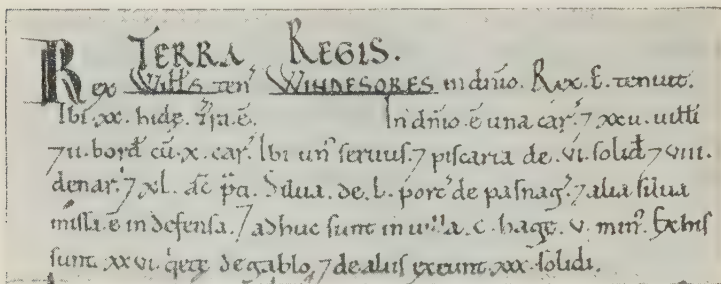 TERRA REGIS.
Rex Willꝰs teñ WINDESORES in dñio. Rex. E. tenuit.
Ibi .xx. hidę. t̃ra.ẽ. In dñio.ẽ una car̃. ⁊ xxii. uitti
⁊ ii. bord̃ cũ .x. car̃. Ibi unꝰ seruus. ⁊ piscaria de .vi. solid̃ ⁊ viii.
denar̃. ⁊ xl. ac̃ p̃ti. Silua. de. L. porc̃ de pasnag̃. ⁊ alia silua
missa.ẽ in defensa. ⁊ adhuc sunt in uilla .c. hagæ .v. minꝰ. Ex his
sunt. xxvi. q̃etę de gablo. ⁊ de aliis exeunt .xxx. solidi.